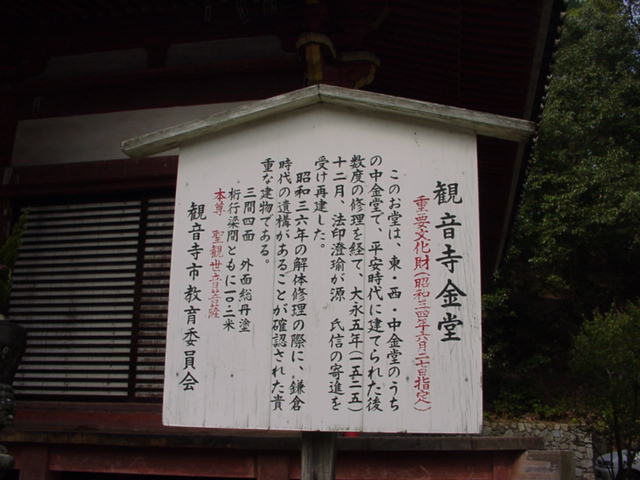 観音寺金堂
重要文化財(昭和三四年六月二七日指定)
このお堂は、東・西・中金堂のうち
の中金堂で、平安時代に建てられた後
数度の修理を経て、大永五年(一五二五)
十二月、法印澄瑜が源 氏信の寄進を
受け再建した。
昭和三六年の解体修理の際に、鎌倉
時代の遺構があることが確認された貴
重な建物である。
三間四面 外面総丹塗
桁行梁間ともに一〇・三米
本尊 聖観世音菩薩
観音寺市教育委員会